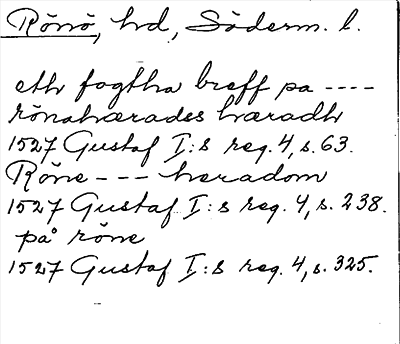 Rönö, hd, Söderm. l.
eth fogtha breff pa ----
rönahærades hæradh
1527 Gustaf I:s reg. 4, s. 63.
Röne --- heradom
1527 Gustaf I:s reg. 4, s. 238.
på röne
1527 Gustaf I:s reg. 4, s. 325.